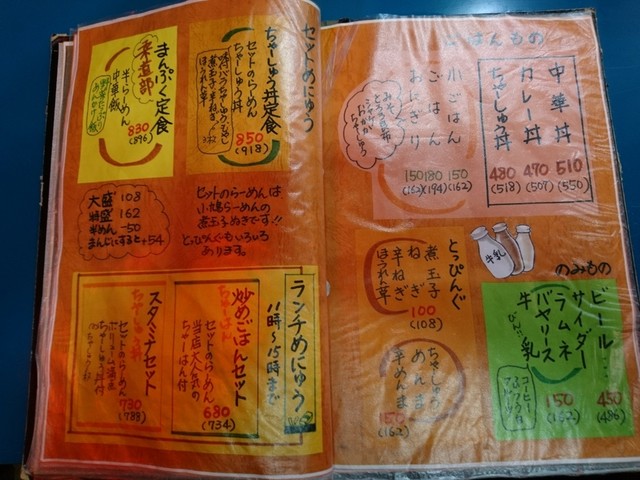 ごはんもの
中華丼 510 (550)
カレー丼 470 (507)
ちゃーしゅう丼 480 (518)
小ごはん 150 (162)
ごはん 180 (194)
おにぎり 150 (162)
とっぴんぐ
煮玉子
ねぎ
辛ねぎ
ほうれん草
100
(108)
ちゃーしゅう
めんま
辛めんま
150
(162)
牛乳
のみもの
ビール・・・・ 450 (486)
サイダー
ラムネ
バヤリース
牛乳
150
(162)
コーヒー
フルーツ
セットめにゅう
ちゃーしゅう丼定食
セットのらーめん
ちゃーしゅう丼
ほうれん草
850
(918)
まんぷく定食
柔道部
半らーめん
中華飯
830
(896)
セットのらーめんは
煮玉子ぬきです!!
とっぴんぐもいろいろ
あります。
大盛 108
特盛 162
半めん -50
+54
ランチめにゅう
11時〜15時まで
炒めごはんセット
ちゃーはん
セットのらーめん
当店大人気の
ちゃーはん付
680
(734)
スタミナセット
セットのらーめん
730
(788)